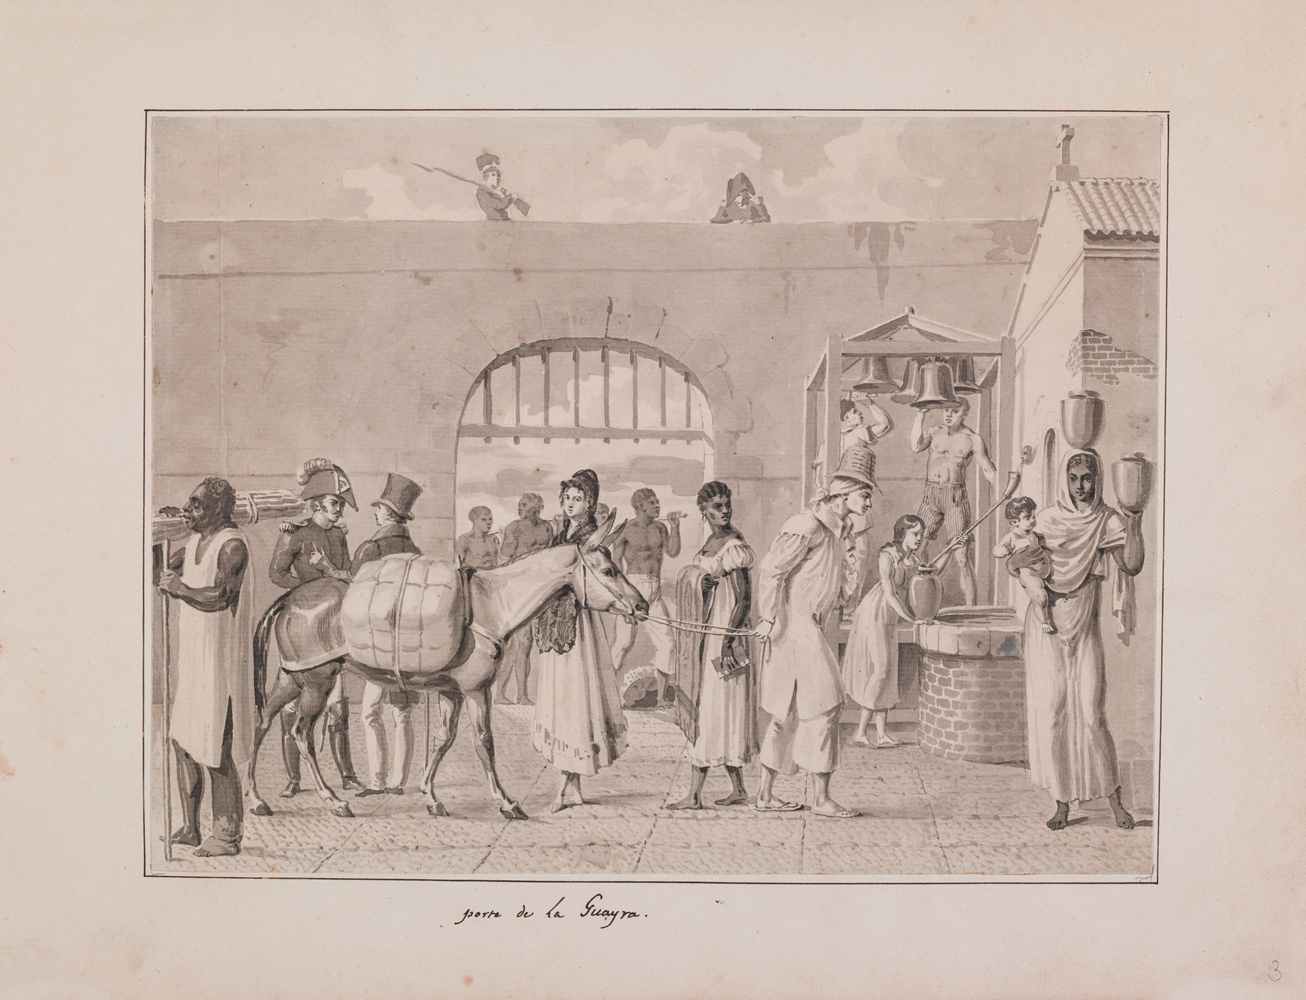 porte de La Guayra.
3